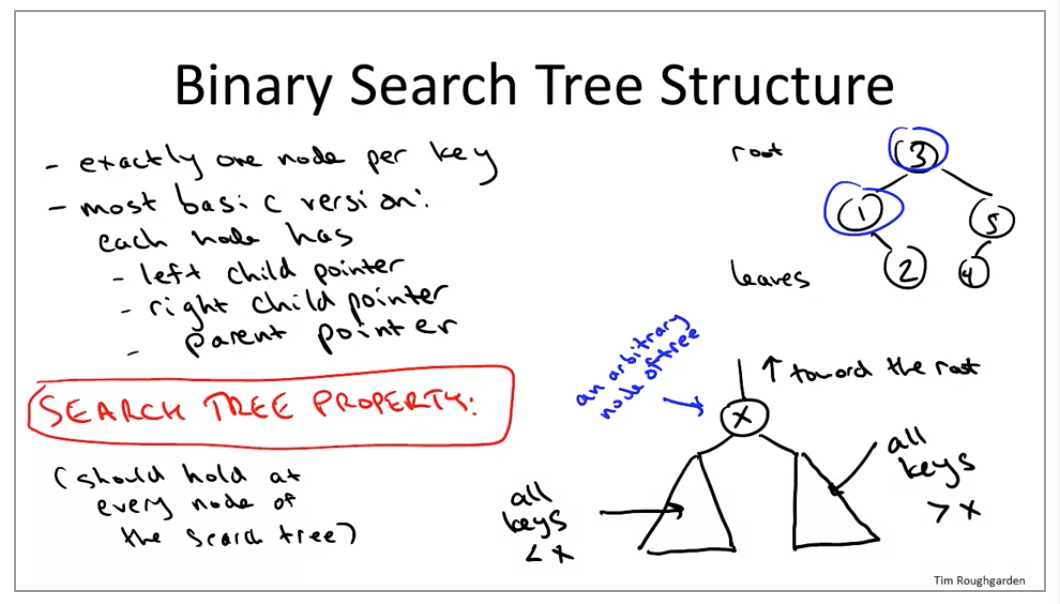 Binary Search Tree Structure
- exactly one node per key
- most basic version:
each node has
- left child pointer
- right child pointer
- parent pointer
SEARCH TREE PROPERTY:
(should hold at
every node of
the search tree)
root
3
1
5
2
4
leaves
an arbitrary
node of tree
↑ toward the root
x
all
keys
< x
all
keys
> x
Tim Roughgarden